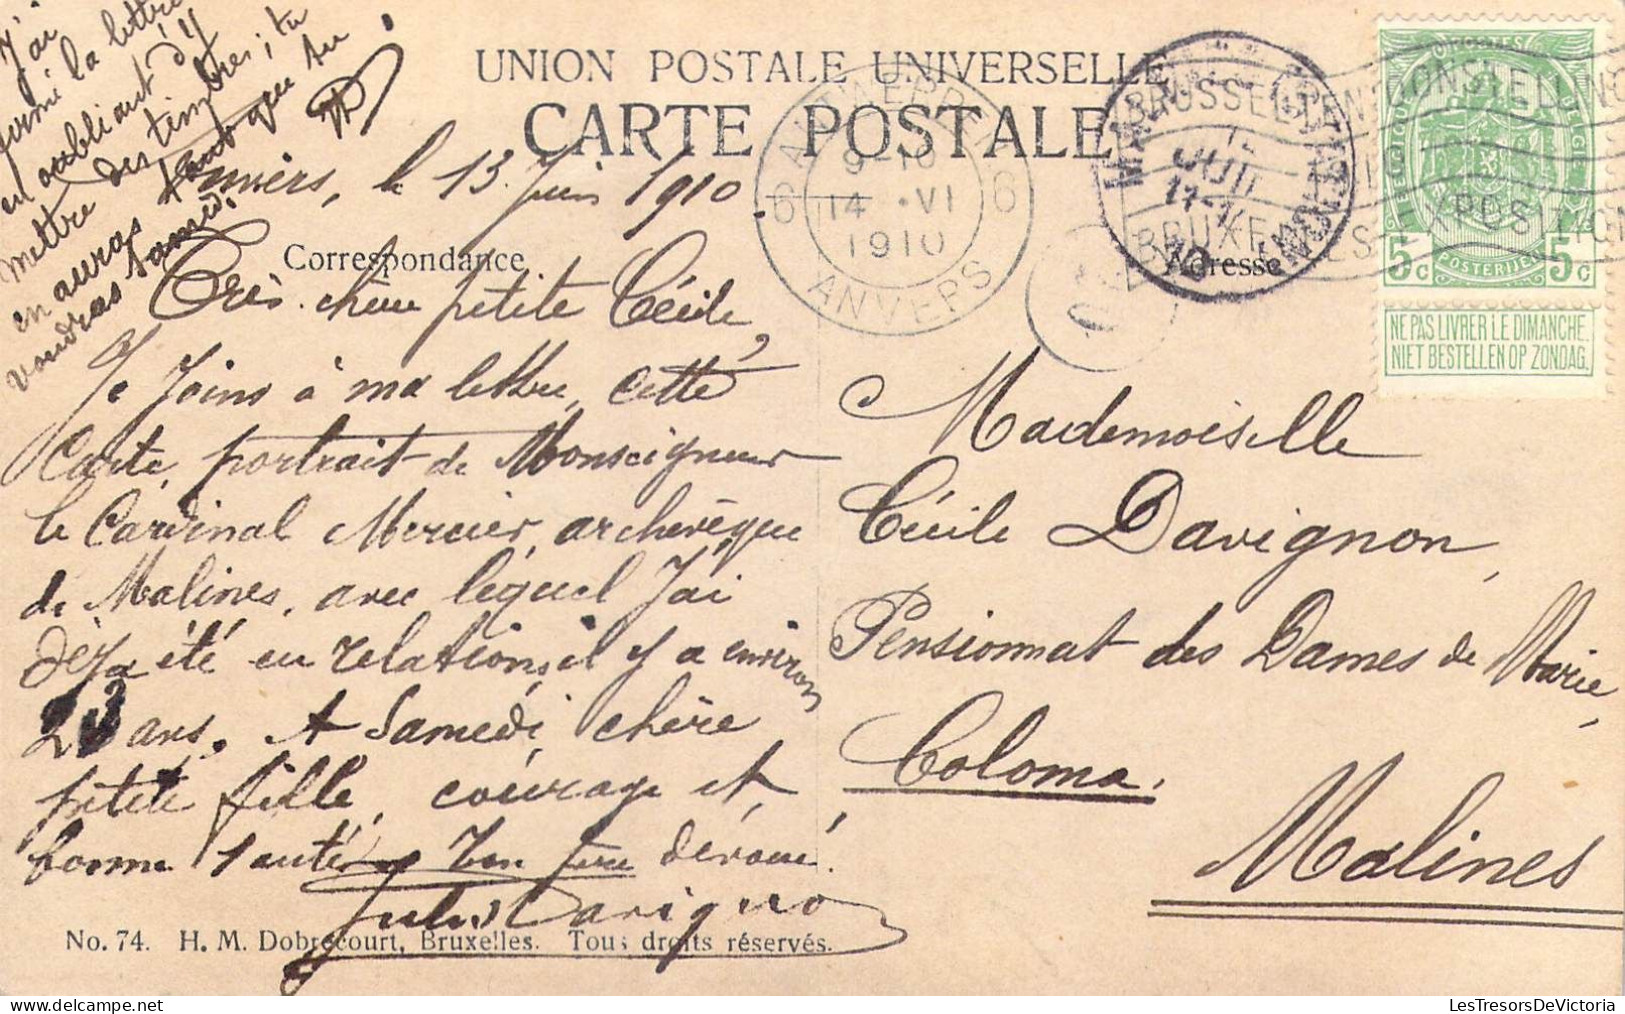 J'ai
fermé la lettre
en oubliant d'y
mettre des timbres; tu
en auras tant que tu
voudras Samedi.
UNION POSTALE UNIVERSELLE
CARTE POSTALE
Anvers, le 13 Juin 1910
Correspondance
Adresse
Très chère petite Cécile,
Je Joins à ma lettre, cette
Carte, portrait de Monseigneur
le Cardinal Mercier, archevêque
de Malines, avec lequel J'ai
déja été en relations, il y a environ
23 ans. A Samedi, chère
petite fille, courage et
bonne Santé. Ton père dévoué.
Jules Davignon
No. 74. H. M. Dobrecourt, Bruxelles. Tous droits réservés.
ANTWERPEN
6 6
9-10
14 VI
1910
ANVERS
BRUSSEL
BRUXELLES
EXPOSITION
5c POSTERIJEN 5c
NE PAS LIVRER LE DIMANCHE.
NIET BESTELLEN OP ZONDAG.
Mademoiselle
Cécile Davignon,
Pensionnat des Dames de Marie,
Coloma.
Malines
LesTresorsDeVictoria